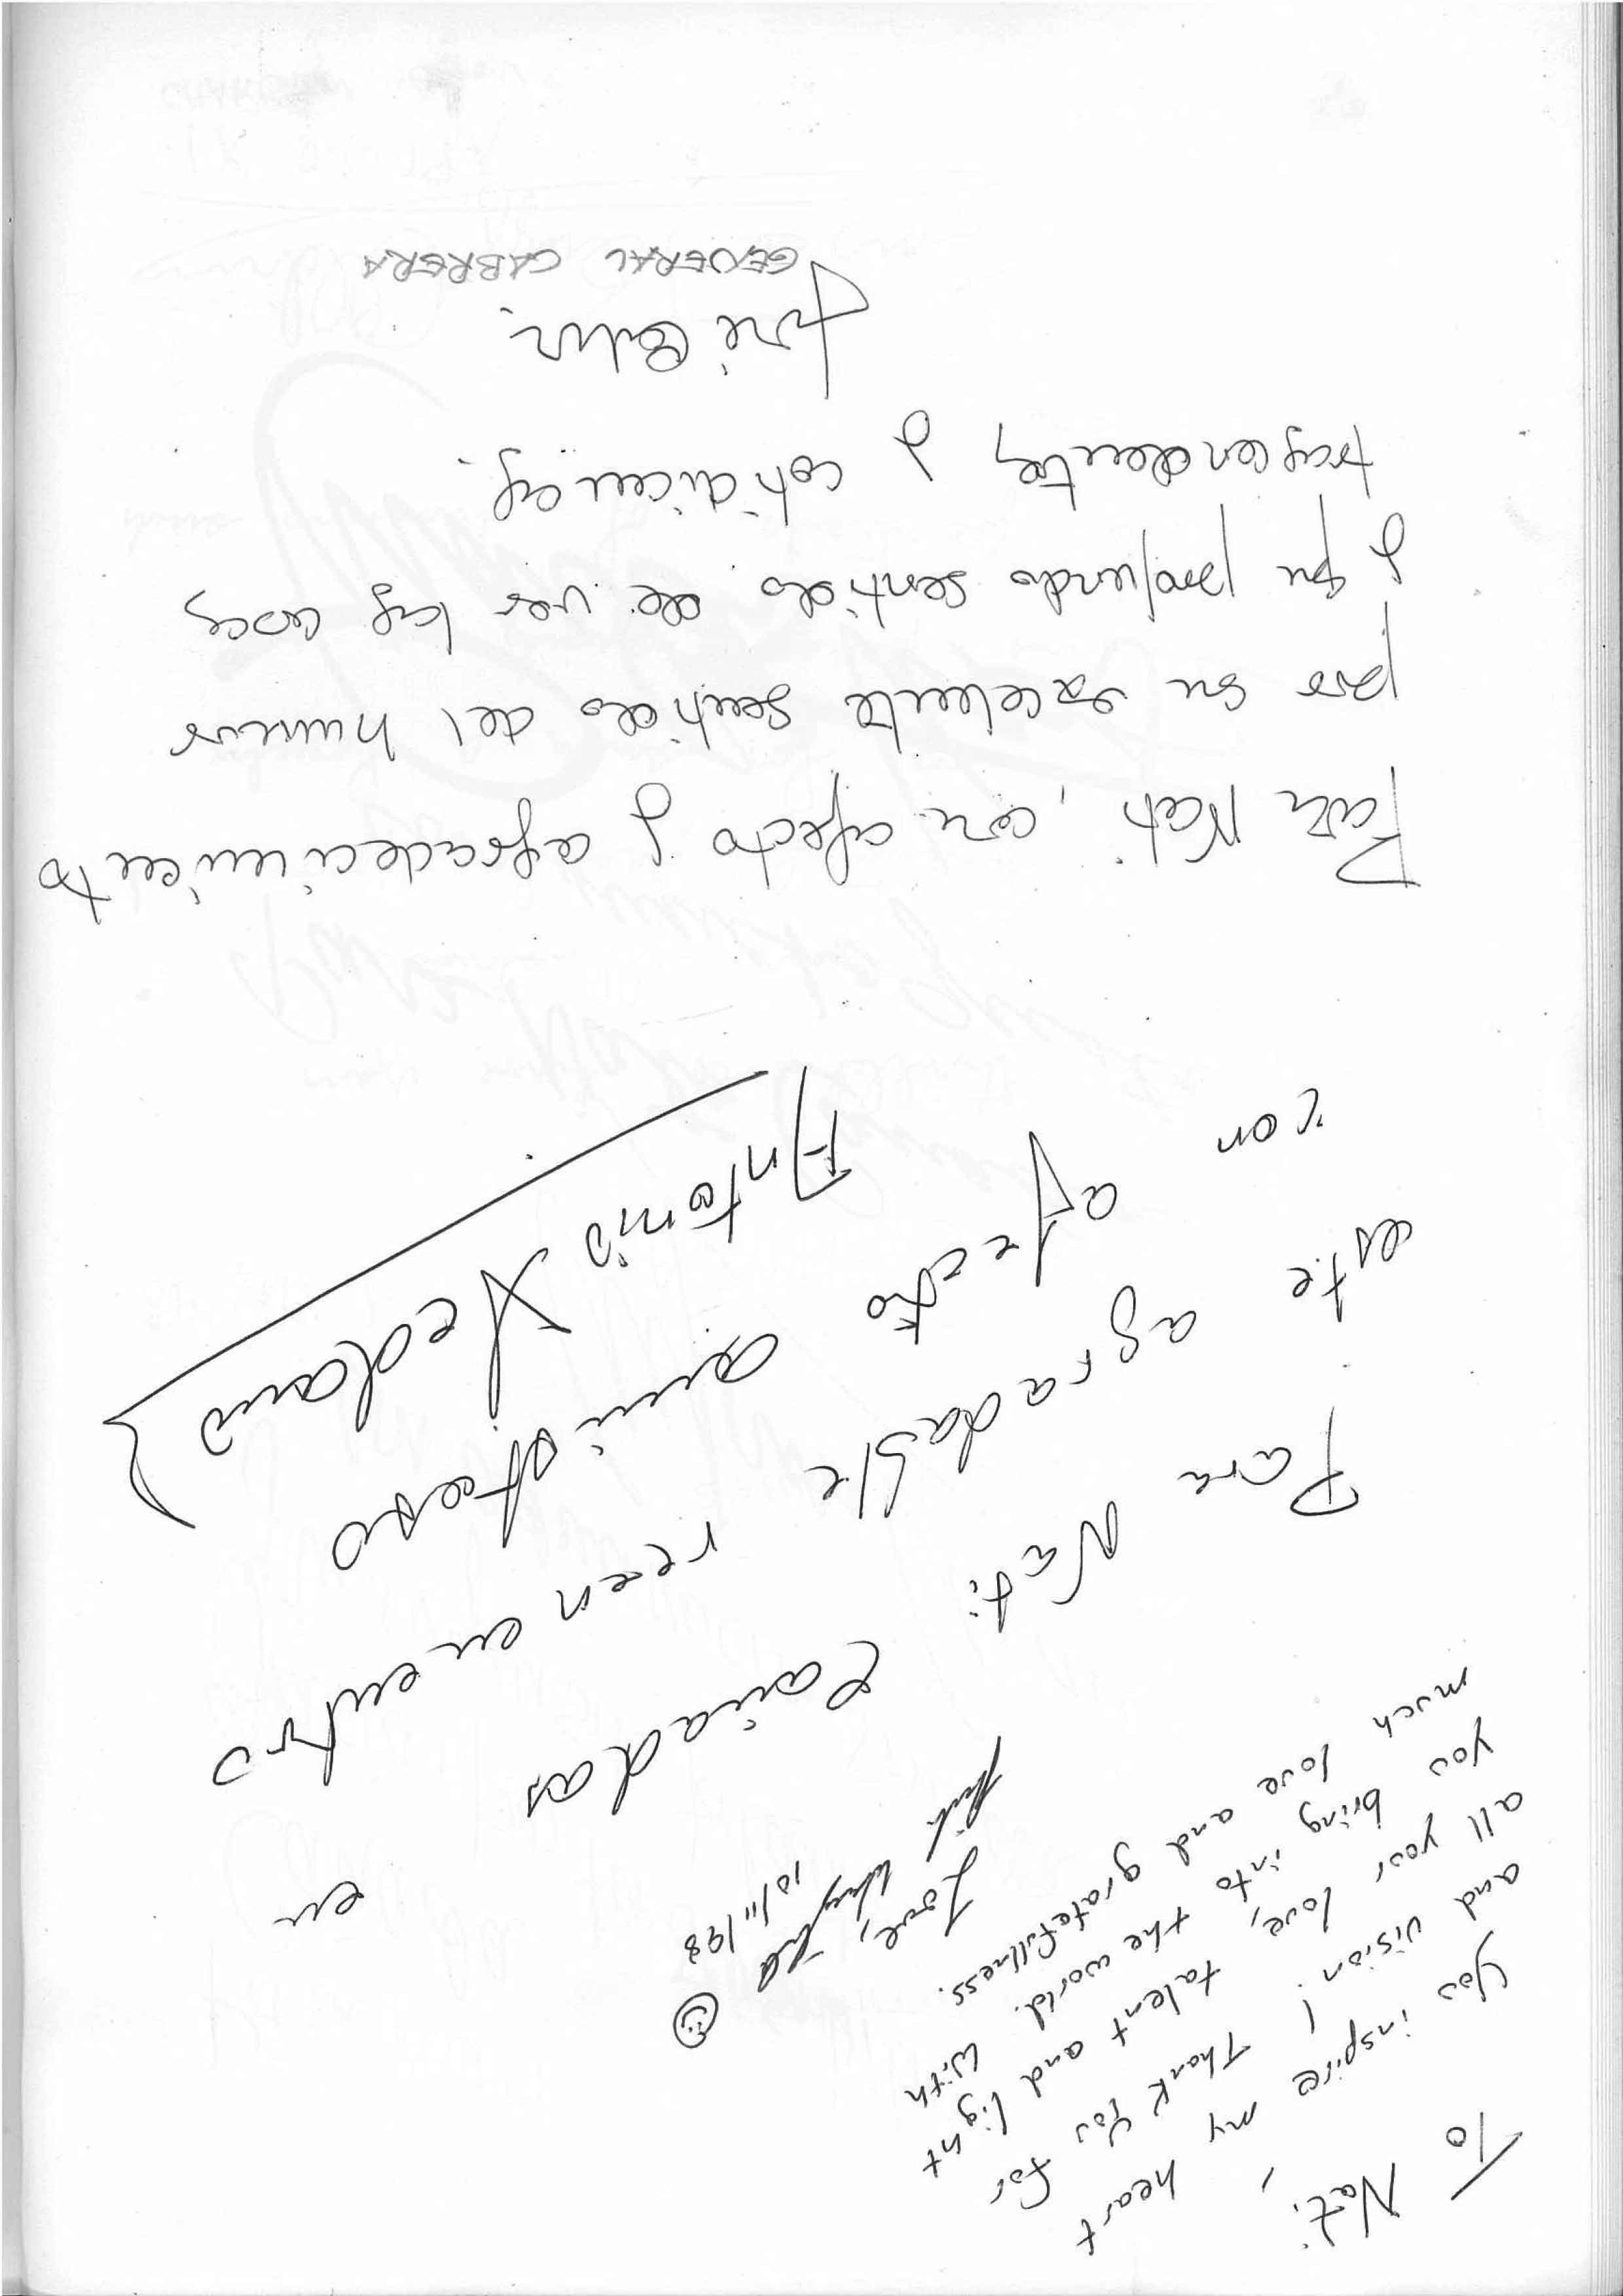 To Nati,
You inspire my heart
and vision! Thank You for
all your love, talent and light
you bring into the world. With
much love and gratefullness.
Love,
10/11/98
Para Nati Cañadas en
este agradable reencuentro
con afecto amistoso
Antonio
Para Nati, con afecto y agradecimiento
por su excelente sentido del humor
y su profundo sentido de ver las cosas
trascendentes y cotidianas.
José
GENERAL CABRERA